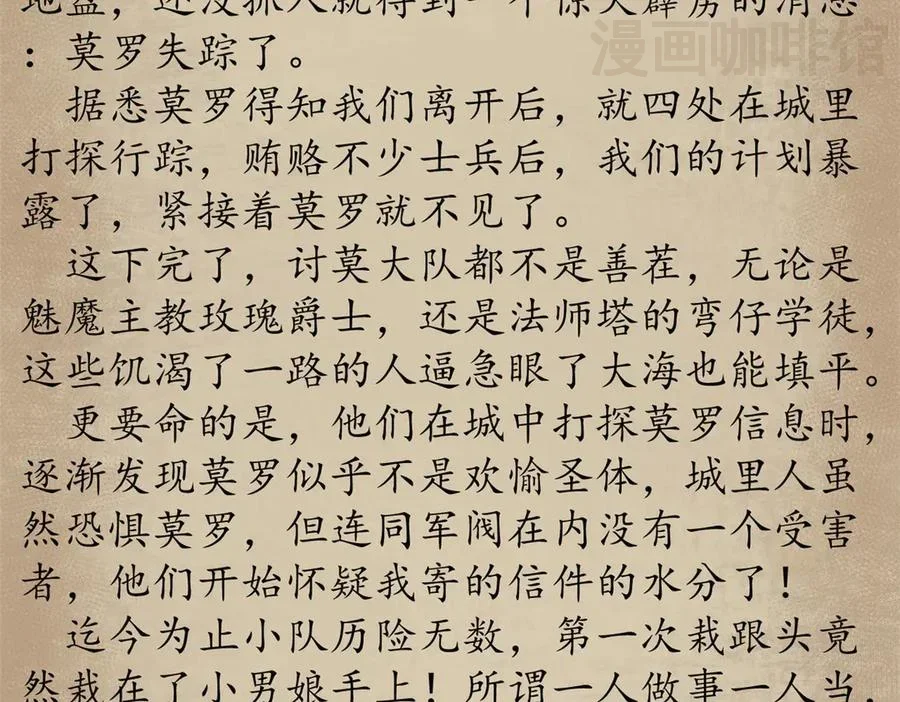 地盘，还没抓人就得到一个惊天霹雳的消息
：莫罗失踪了。
漫画咖啡馆
据悉莫罗得知我们离开后，就四处在城里
打探行踪，贿赂不少士兵后，我们的计划暴
露了，紧接着莫罗就不见了。
这下完了，讨莫大队都不是善茬，无论是
魅魔主教玫瑰爵士，还是法师塔的弯仔学徒，
这些饥渴了一路的人逼急眼了大海也能填平。
更要命的是，他们在城中打探莫罗信息时，
逐渐发现莫罗似乎不是欢愉圣体，城里人虽
然恐惧莫罗，但连同军阀在内没有一个受害
者，他们开始怀疑我寄的信件的水分了！
迄今为止小队历险无数，第一次栽跟头竟
然栽在了小男娘手上！所谓一人做事一人当，